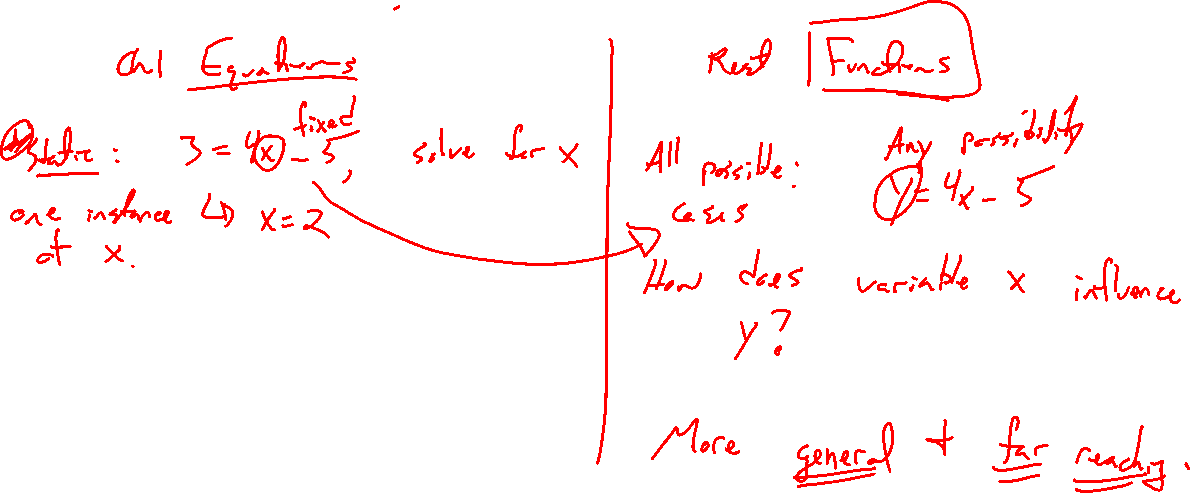 Ch1 Equations
Static: 3 = 4x - 5, solve for x
fixed
one instance ↳ x = 2
at x.
Rest Functions
Any possibility
All possible: y = 4x - 5
cases
How does variable x influence
y?
More general + far reaching.